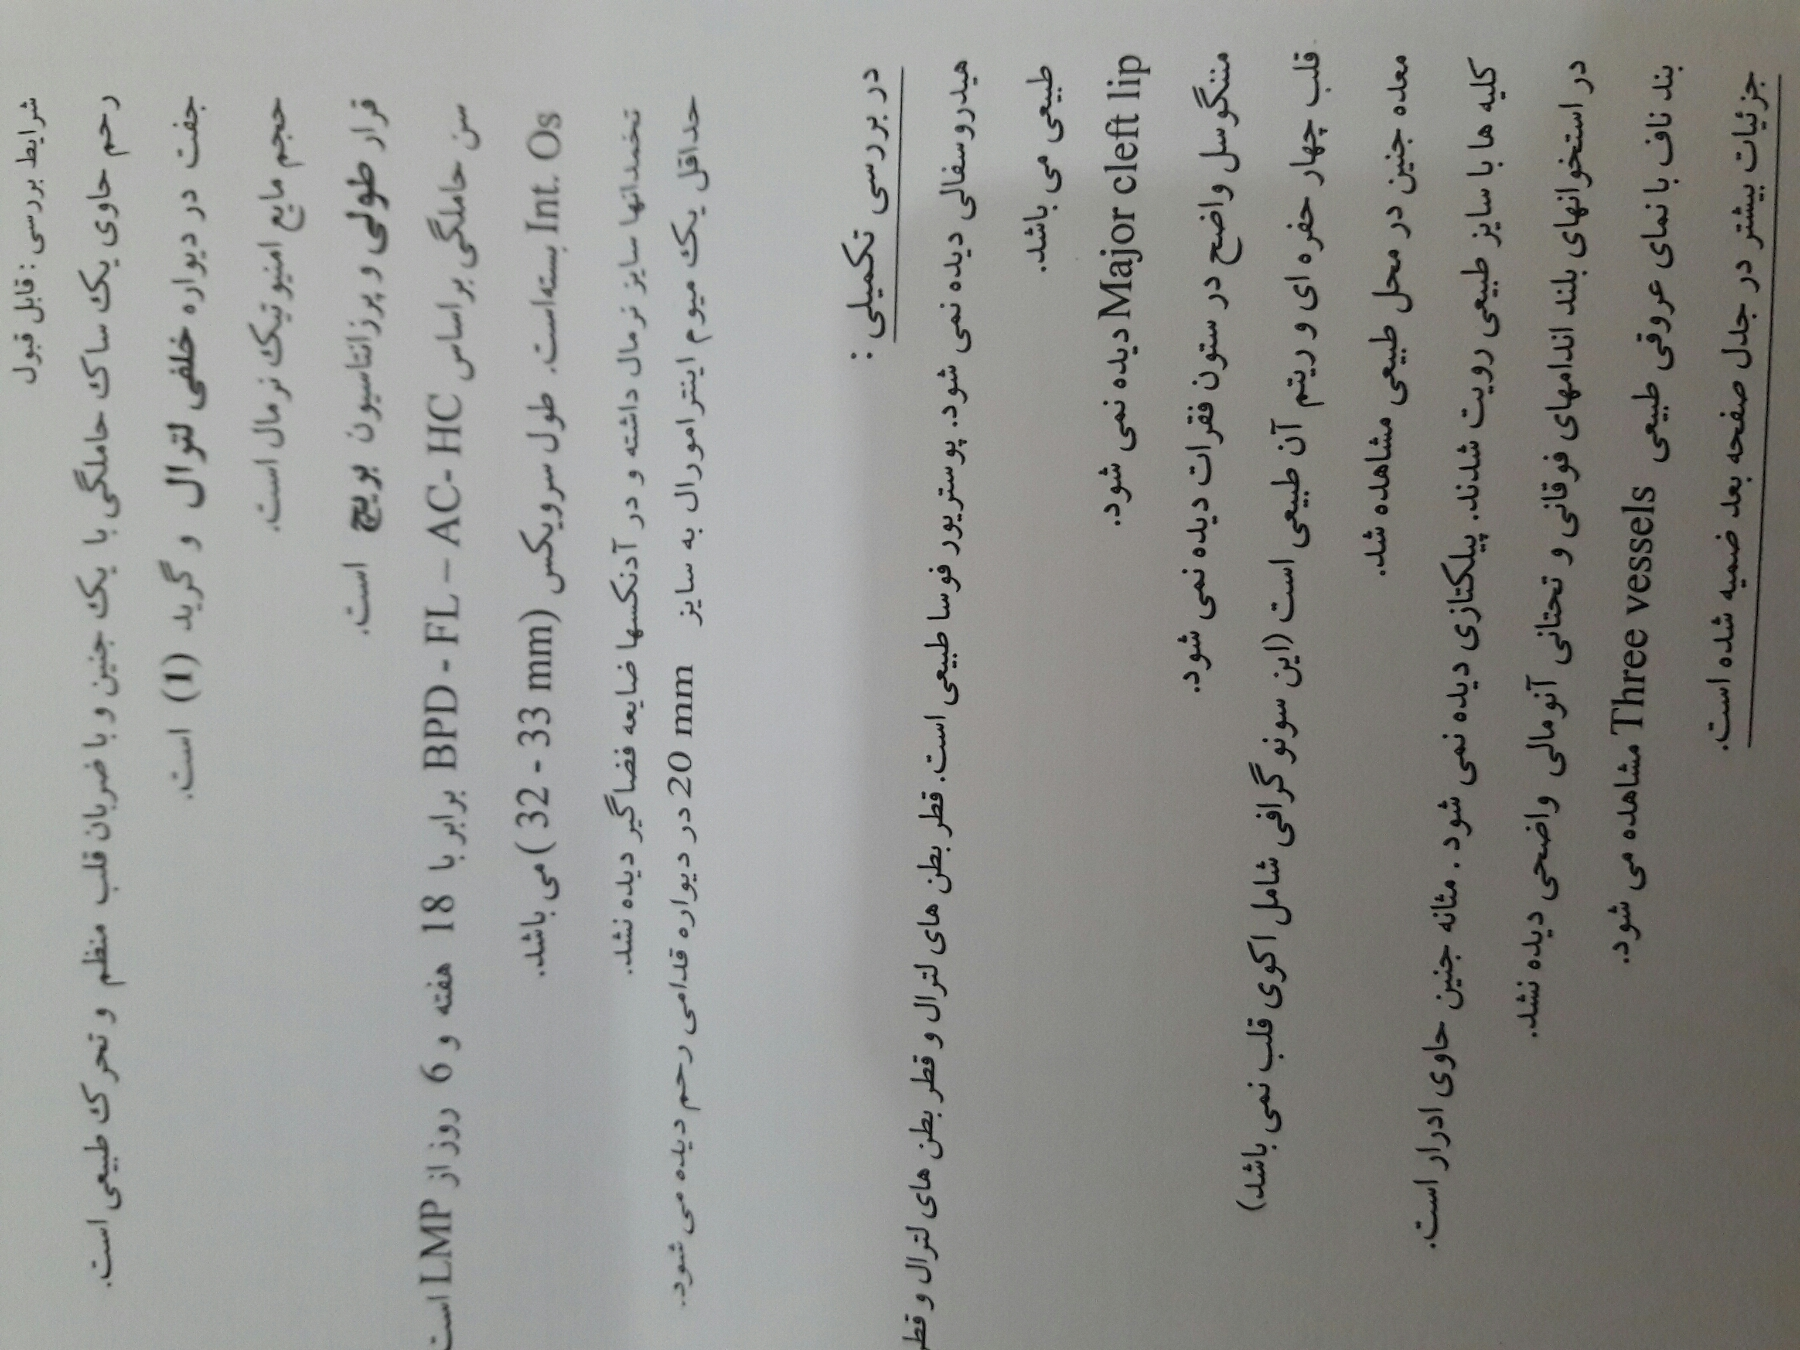 شرایط بررسی : قابل قبول
رحم حاوی یک ساک حاملگی با یک جنین و با ضربان قلب منظم و تحرک طبیعی است.
جفت در دیواره خلفی لترال و گرید (1) است.
حجم مایع امنیوتیک نرمال است.
قرار طولی و پرزانتاسیون بریچ است.
سن حاملگی براساس BPD - FL – AC- HC برابر با 18 هفته و 6 روز از LMP است
Int. Os بسته است. طول سرویکس (32 - 33 mm) می باشد.
تخمدانها سایز نرمال داشته و در آدنکسها ضایعه فضاگیر دیده نشد.
حداقل یک میوم اینترامورال به سایز 20 mm در دیواره قدامی رحم دیده می شود.
در بررسی تکمیلی :
هیدروسفالی دیده نمی شود. پوستریور فوسا طبیعی است. قطر بطن های لترال و قطر بطن های لترال و قطر
طبیعی می باشد.
Major cleft lip دیده نمی شود.
مننگوسل واضح در ستون فقرات دیده نمی شود.
قلب چهار حفره ای و ریتم آن طبیعی است (این سونوگرافی شامل اکوی قلب نمی باشد)
معده جنین در محل طبیعی مشاهده شد.
کلیه ها با سایز طبیعی رویت شدند. پیلکتازی دیده نمی شود . مثانه جنین حاوی ادرار است.
در استخوانهای بلند اندامهای فوقانی و تحتانی آنومالی واضحی دیده نشد.
بند ناف با نمای عروقی طبیعی Three vessels مشاهده می شود.
جزئیات بیشتر در جدل صفحه بعد ضمیه شده است.